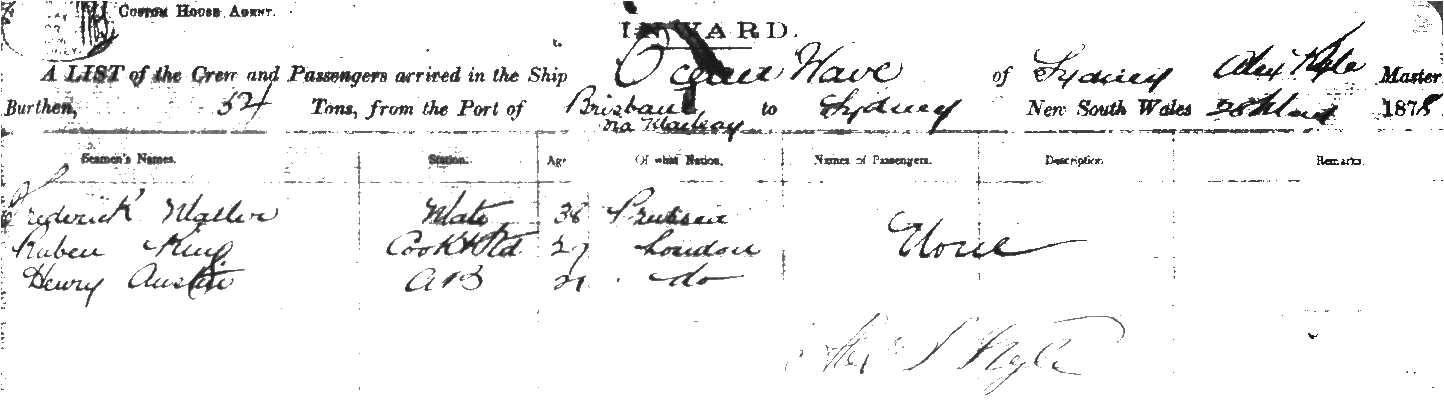 CUSTOM HOUSE AGENT.
INWARD.
A LIST of the Crew and Passengers arrived in the Ship Ocean Wave of Sydney Alex Kyle Master
Burthen, 54 Tons, from the Port of Brisbane to Sydney New South Wales 28 March 1878
via Macleay
Seamen's Names. Station. Age Of what Nation. Names of Passengers. Description. Remarks.
Frederick Mate 38 Prussia None
Ruben King Cook & Std 27 London
Henry Austin AB 21 do
Alex Kyle